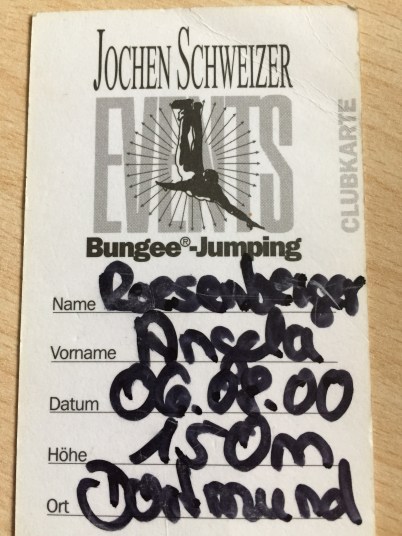 JOCHEN SCHWEIZER
EVENTS
CLUBKARTE
Bungee®-Jumping
Name Roesenberger
Vorname Angela
Datum 06.08.00
Höhe 150m
Ort Dortmund